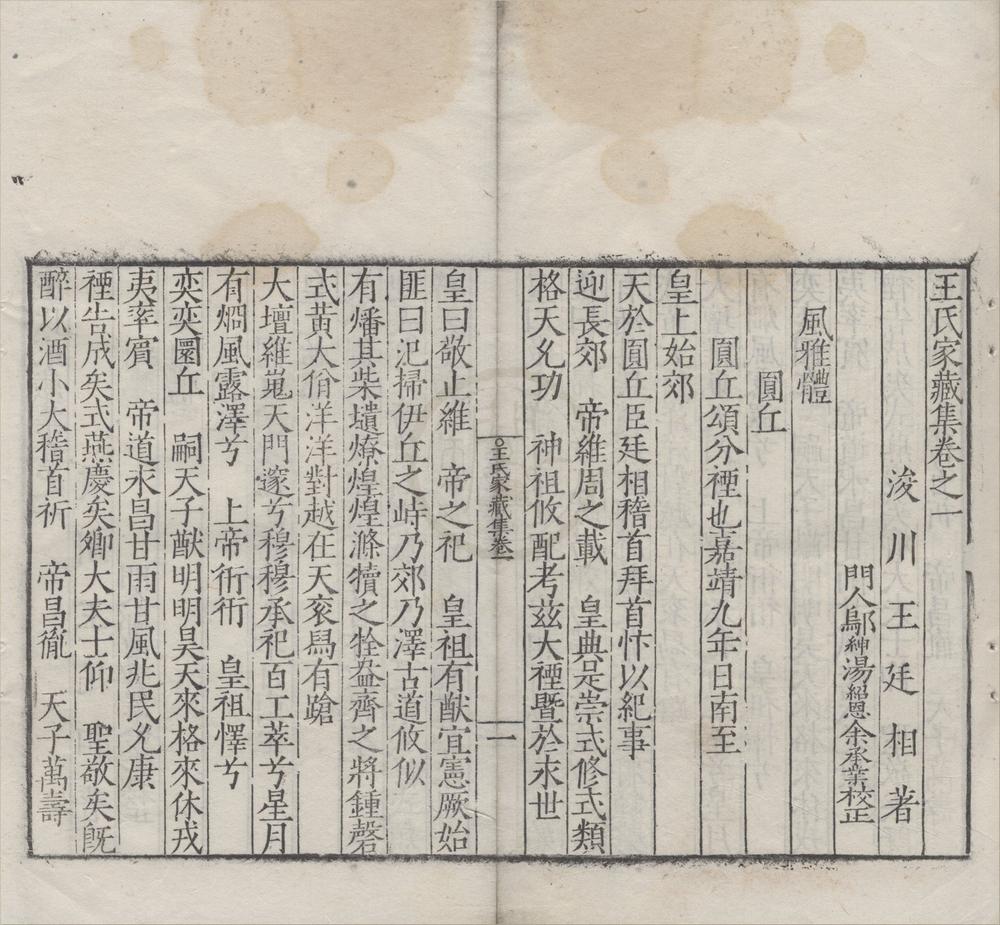 王氏家藏集卷之一
浚川王廷相著
門人鄔紳湯紹恩余承業校正
風雅體
圜丘
圜丘頌分禋也嘉靖九年日南至
皇上始郊
天於圓丘臣廷相稽首拜首忭以紀事
迎長郊 帝維周之載 皇典是崇式修式類
格天允功 神祖攸配考茲大禋曁於永世
王氏家藏集卷一
一
皇曰敬止維 帝之祀 皇祖有猷宜憲厥始
匪曰汜掃伊丘之峙乃郊乃澤古道攸似
有燔其柴壝燎煌煌滌犢之牷盎齊之將鍾磬
式黃大佾洋洋對越在天衮舄有蹌
大壇維嵬天門邃兮穆穆承祀百工萃兮星月
有烱風露澤兮 上帝衎衎 皇祖懌兮
奕奕圜丘 嗣天子猷明明昊天來格來休戎
夷率賓 帝道永昌甘雨甘風兆民允康
禋告成矣式燕慶矣卿大夫士仰 聖敬矣旣
醉以酒小大稽首祈 帝昌胤 天子萬壽